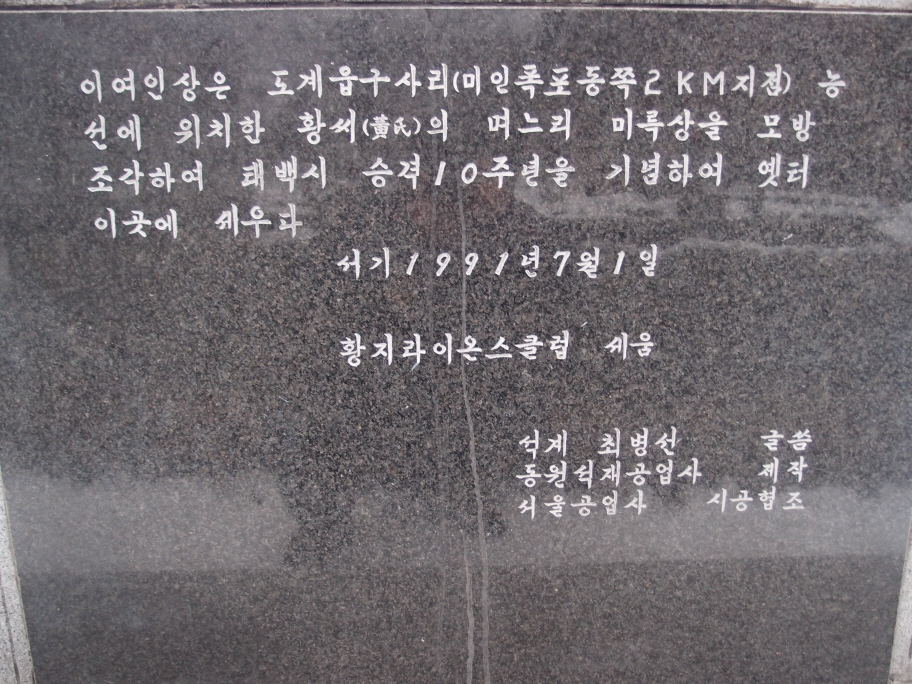 이여인상은 도계읍구사리(미인폭포동쪽2KM지점) 능
선에 위치한 황씨(黃氏)의 며느리 미륵상을 모방
조각하여 태백시 승격10주년을 기념하여 옛터
이곳에 세우다
서기1991년7월1일
황지라이온스클럽 세움
석계 최병선 글씀
동원석재공업사 제작
서울공업사 시공협조